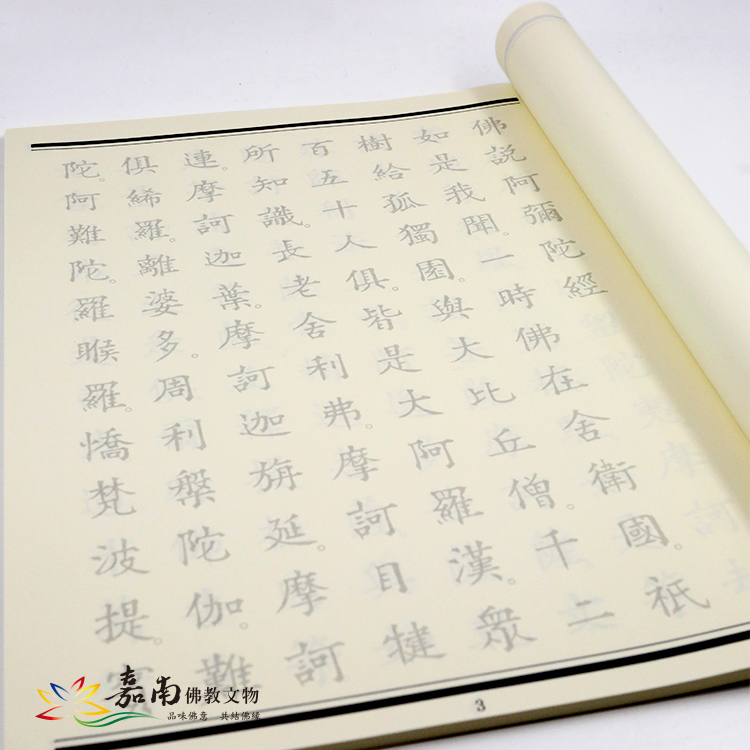 佛說阿彌陀經
如是我聞。一時佛在舍衛國。祇
樹給孤獨園。與大比丘僧。千二
百五十人俱。皆是大阿羅漢。眾
所知識。長老舍利弗。摩訶目犍
連。摩訶迦葉。摩訶迦旃延。摩訶
俱絺羅。離婆多。周利槃陀伽。難
陀。阿難陀。羅睺羅。憍梵波提。
3
嘉南佛教文物
品味佛意 共結佛緣